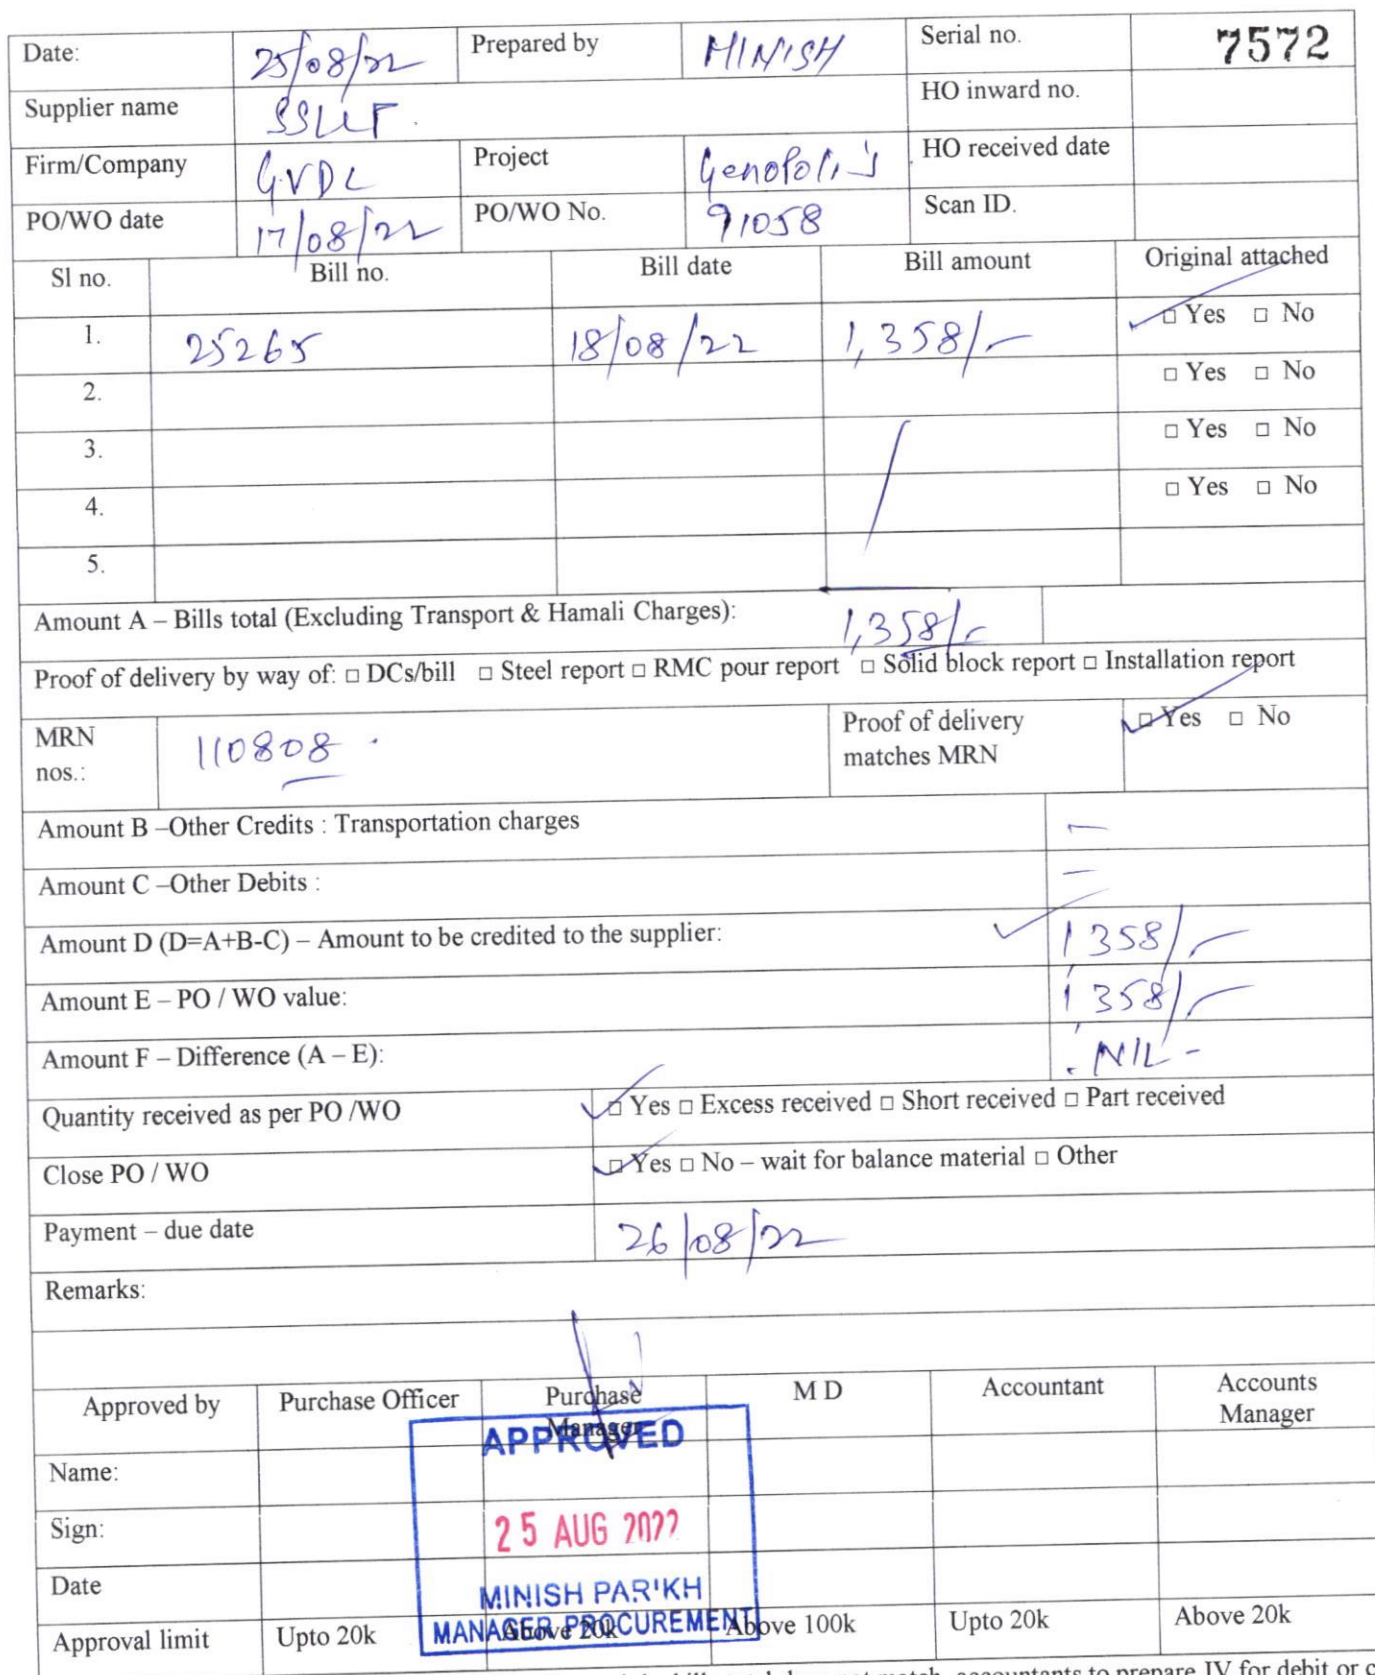 Date: 25/08/22 Prepared by MINISH Serial no. 7572
Supplier name SSLLP. HO inward no.
Firm/Company GVDC Project Genopolis HO received date
PO/WO date 17/08/22 PO/WO No. 91058 Scan ID.
Sl no. Bill no. Bill date Bill amount Original attached
1. 25265 18/08/22 1,358/- □ Yes □ No
2. □ Yes □ No
3. □ Yes □ No
4. □ Yes □ No
5.
Amount A – Bills total (Excluding Transport & Hamali Charges): 1,358/-
Proof of delivery by way of: □ DCs/bill □ Steel report □ RMC pour report □ Solid block report □ Installation report
MRN nos.: 110808 Proof of delivery matches MRN □ Yes □ No
Amount B –Other Credits : Transportation charges -
Amount C –Other Debits : -
Amount D (D=A+B-C) – Amount to be credited to the supplier: 1358/-
Amount E – PO / WO value: 1358/-
Amount F – Difference (A – E): NIL -
Quantity received as per PO /WO □ Yes □ Excess received □ Short received □ Part received
Close PO / WO □ Yes □ No – wait for balance material □ Other
Payment – due date 26/08/22
Remarks:
Approved by Purchase Officer Purchase Manager M D Accountant Accounts Manager
APPROVED
Name:
Sign: 25 AUG 2022
Date MINISH PARIKH
MANAGER PROCUREMENT
Approval limit Upto 20k Above 20k Above 100k Upto 20k Above 20k
accountants to prepare JV for debit or